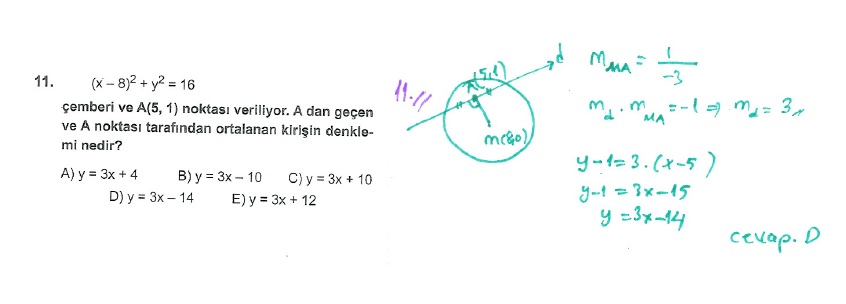 11. (x – 8)² + y² = 16
çemberi ve A(5, 1) noktası veriliyor. A dan geçen
ve A noktası tarafından ortalanan kirişin denkle-
mi nedir?
A) y = 3x + 4 B) y = 3x – 10 C) y = 3x + 10
D) y = 3x – 14 E) y = 3x + 12
11.11
A(5,1)
d
M(8,0)
m_MA = 1/-3
m_d . m_MA = -1 ⇒ m_d = 3
y-1 = 3.(x-5)
y-1 = 3x-15
y = 3x-14
cevap. D